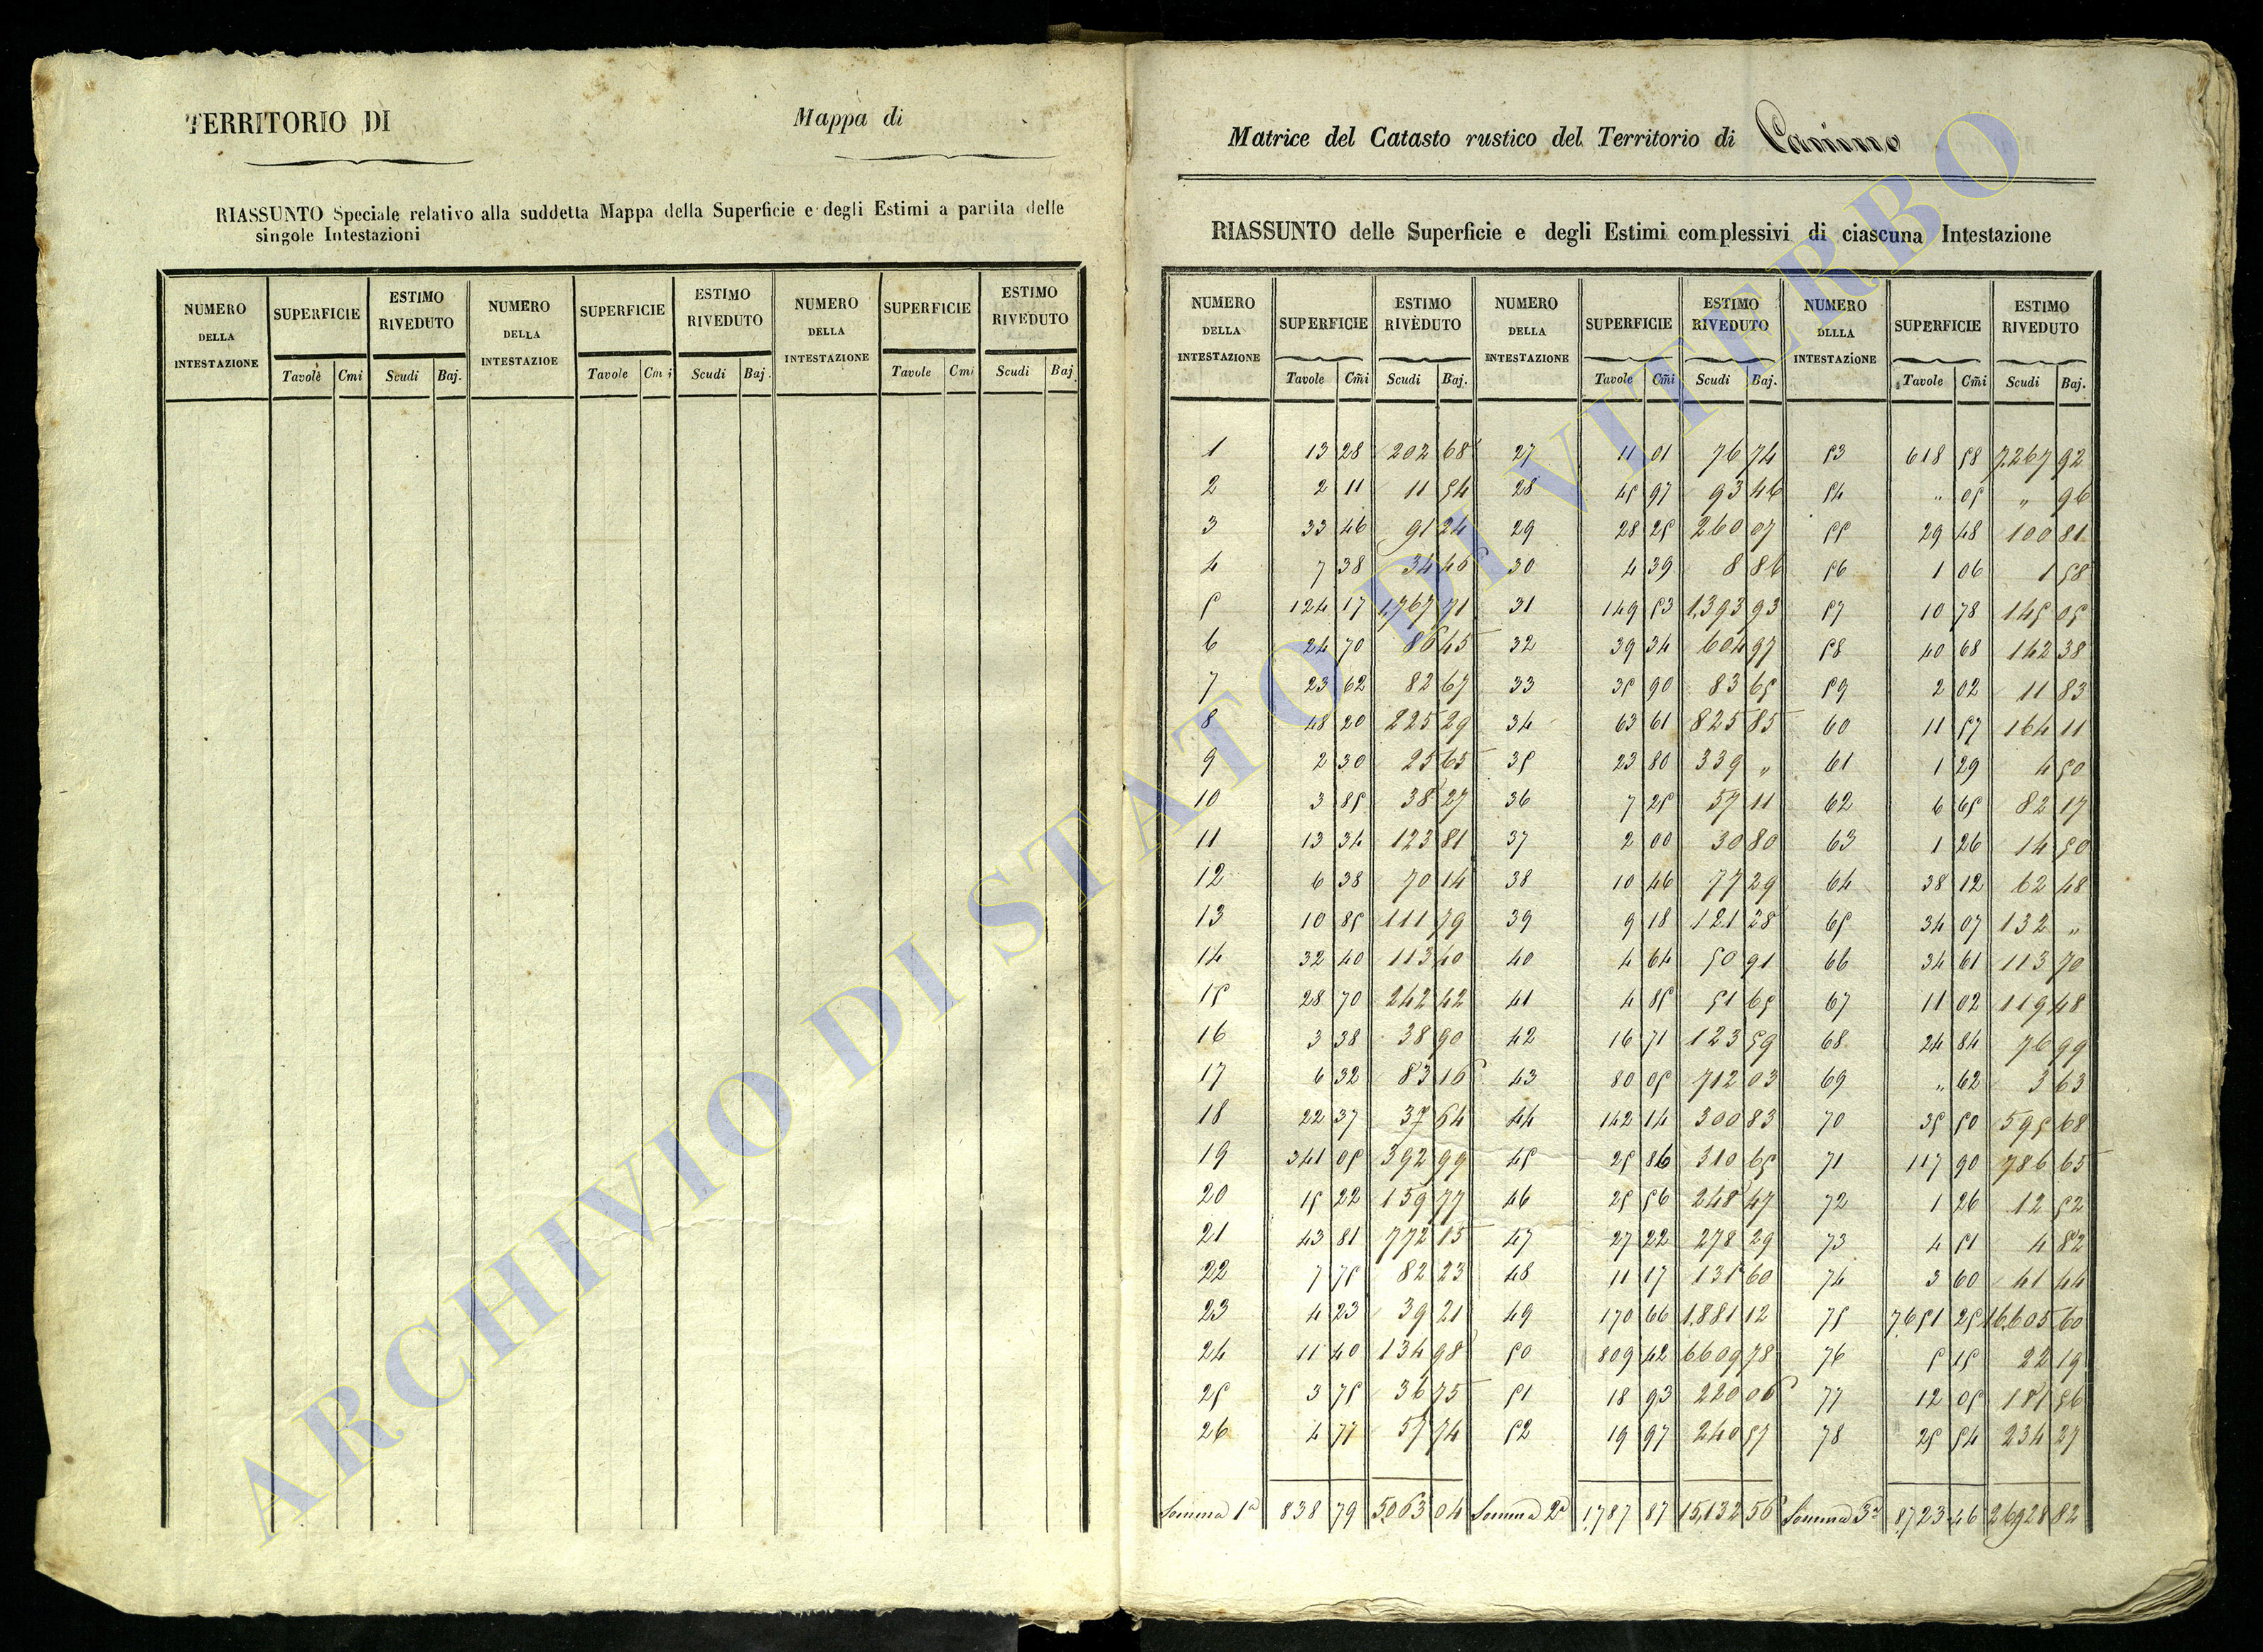 TERRITORIO DI
Mappa di
RIASSUNTO Speciale relativo alla suddetta Mappa della Superficie e degli Estimi a partita delle
singole Intestazioni
NUMERO DELLA INTESTAZIONE SUPERFICIE ESTIMO RIVEDUTO NUMERO DELLA INTESTAZIOE SUPERFICIE ESTIMO RIVEDUTO NUMERO DELLA INTESTAZIONE SUPERFICIE ESTIMO RIVEDUTO
Tavole Cmi Scudi Baj. Tavole Cmi Scudi Baj. Tavole Cmi Scudi Baj.
Matrice del Catasto rustico del Territorio di Canino
RIASSUNTO delle Superficie e degli Estimi complessivi di ciascuna Intestazione
NUMERO DELLA INTESTAZIONE SUPERFICIE ESTIMO RIVEDUTO NUMERO DELLA INTESTAZIONE SUPERFICIE ESTIMO RIVEDUTO NUMERO DLLLA INTESTAZIONE SUPERFICIE ESTIMO RIVEDUTO
Tavole Cm̃i Scudi Baj. Tavole Cm̃i Scudi Baj. Tavole Cm̃i Scudi Baj.
1 13 28 202 68 27 11 01 76 74 53 618 58 7,267 92
2 2 11 11 54 28 45 97 93 46 54 „ 05 „ 96
3 33 46 91 24 29 28 25 260 07 55 29 48 100 81
4 7 38 34 46 30 4 39 8 86 56 1 06 1 58
5 124 17 1,767 71 31 149 53 1,393 93 57 10 78 145 05
6 24 70 86 45 32 39 34 604 97 58 40 68 142 38
7 23 62 82 67 33 35 90 83 65 59 2 02 11 83
8 48 20 225 29 34 63 61 825 85 60 11 57 164 11
9 2 30 25 65 35 23 80 339 „ 61 1 29 4 50
10 3 85 38 27 36 7 25 57 11 62 6 65 82 17
11 13 34 123 81 37 2 00 30 80 63 1 26 14 50
12 6 38 70 14 38 10 46 77 29 64 38 12 62 48
13 10 85 111 79 39 9 18 121 28 65 34 07 132 „
14 32 40 113 40 40 4 64 50 91 66 34 61 113 70
15 28 70 242 42 41 4 85 51 65 67 11 02 119 48
16 3 38 38 90 42 16 71 123 59 68 24 84 76 99
17 6 32 83 16 43 80 05 712 03 69 „ 62 3 63
18 22 37 37 64 44 142 14 300 83 70 35 50 595 68
19 341 05 392 99 45 25 86 310 65 71 117 90 786 65
20 15 22 159 77 46 25 56 248 47 72 1 26 12 52
21 43 81 772 15 47 27 22 278 29 73 4 51 4 82
22 7 75 82 23 48 11 17 131 60 74 3 60 41 44
23 4 23 39 21 49 170 66 1,881 12 75 7,651 25 16,605 60
24 11 40 134 98 50 809 42 6609 78 76 5 15 22 19
25 3 75 36 75 51 18 93 220 06 77 12 05 181 56
26 4 77 57 74 52 19 97 240 57 78 25 54 234 27
Somma 1ª 838 79 5,063 04 Somma 2ª 1,787 87 15,132 56 Somma 3ª 8,723 46 26,928 82
ARCHIVIO DI STATO DI VITERBO